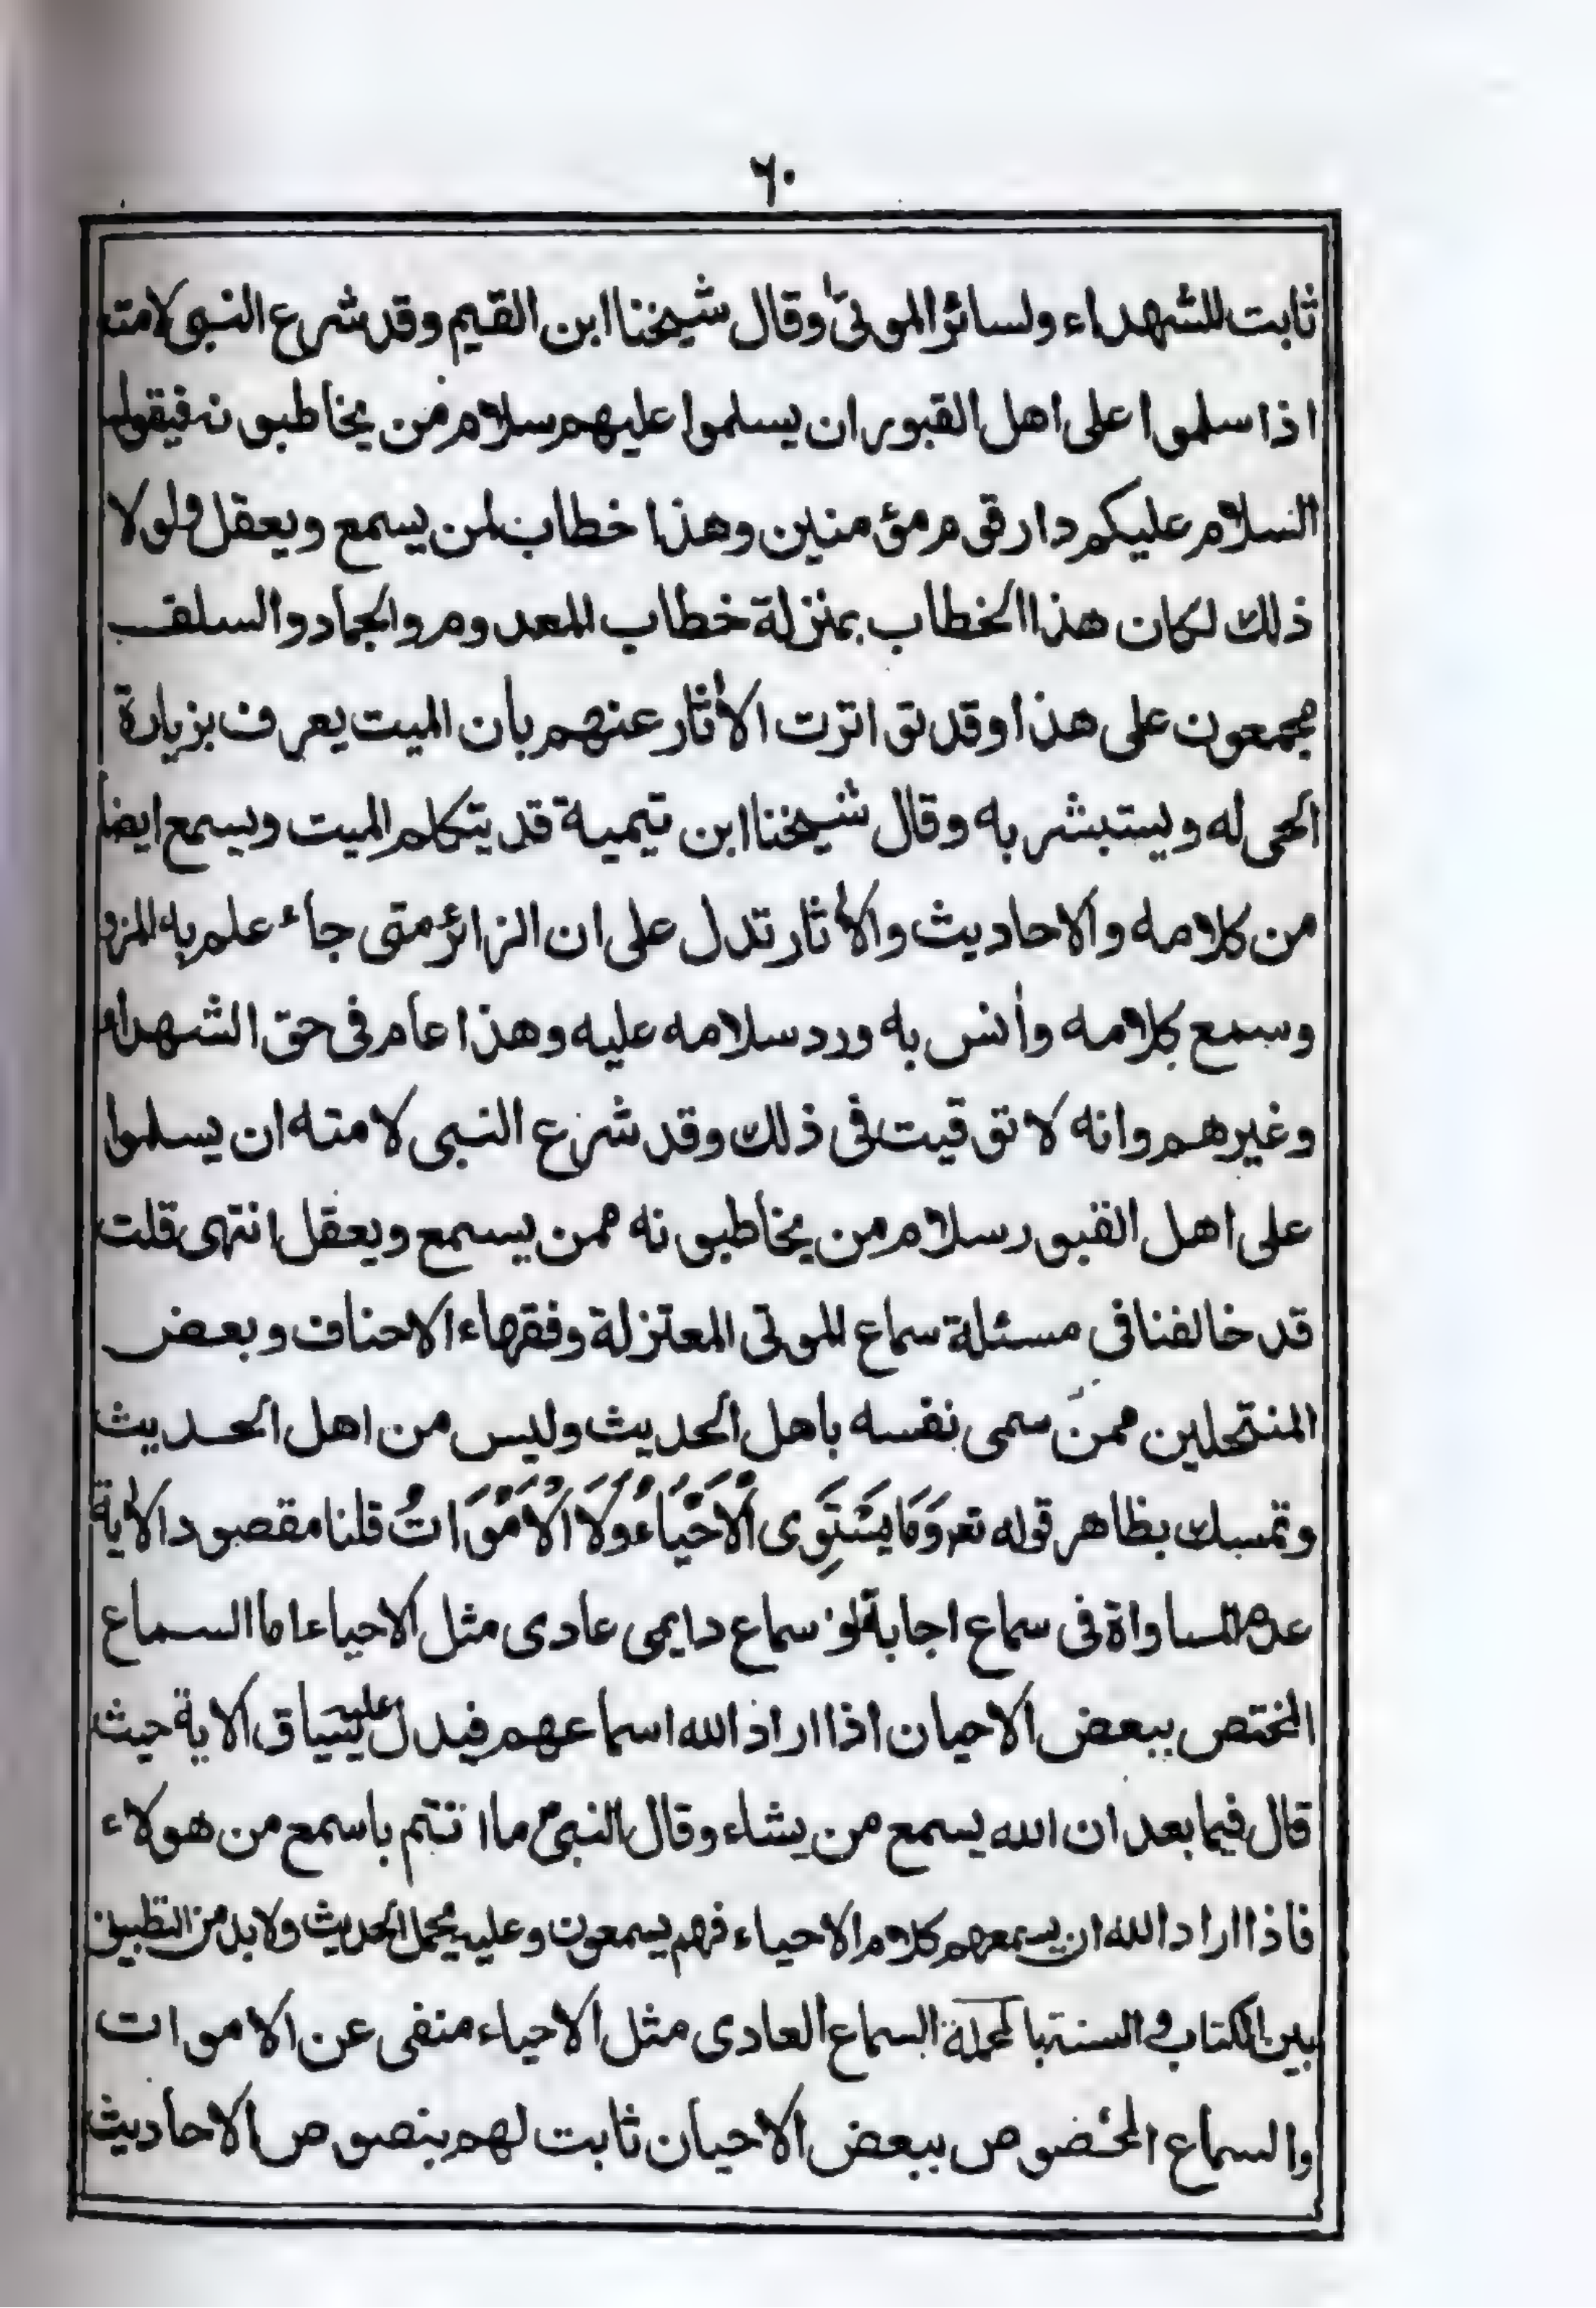 ٦٠
ثابت للشهداء ولسائر الموتى وقال شيخنا ابن القيم وقد شرع النبى لامته
اذا سلموا على اهل القبور ان يسلموا عليهم سلام من يخاطبونه فيقول
السلام عليكم دار قوم مؤمنين وهذا خطاب لمن يسمع ويعقل ولولا
ذلك لكان هذا الخطاب بمنزلة خطاب المعدوم والجماد والسلف
مجمعون على هذا وقد تواترت الأثار عنهم بان الميت يعرف بزيارة
الحى له ويستبشر به وقال شيخنا ابن تيمية قد يتكلم الميت ويسمع ايضا
من كلامه والاحاديث والأثار تدل على ان الزائر متى جاء علم به المزو
وسمع بكلامه وأنس به ورد سلامه عليه وهذا عام فى حق الشهداء
وغيرهم وانه لا توقيت فى ذلك وقد شرع النبى لامته ان يسلموا
على اهل القبور سلام من يخاطبونه ممن يسمع ويعقل انتهى قلت
قد خالفنا فى مسئلة سماع الموتى المعتزلة وفقهاء الاحناف وبعض
المنتحلين ممن سمى نفسه باهل الحديث وليس من اهل الحديث
وتمسك بظاهر قوله تعـ وَمَا يَسْتَوِى الْاَحْيَاءُ وَلَا الْاَمْوَاتُ قلنا مقصود الأية
عدم المساواة فى سماع اجابة او سماع دايمى عادى مثل الاحياء اما السماع
المختص ببعض الاحيان اذا اراد الله اسماعهم فيدل عليه سياق الاية حيث
قال فيما بعد ان الله يسمع من يشاء وقال النبىؐ ما انتم باسمع من هولاء
فاذا اراد الله ان يسمعهم كلام الاحياء فهم يسمعون وعليه يحمل الحديث ولا بد من التطبيق
بين الكتاب و السنة بالجملة السماع العادى مثل الاحياء منفى عن الاموات
والسماع المخصوص ببعض الاحيان ثابت لهم بنصوص الاحاديث